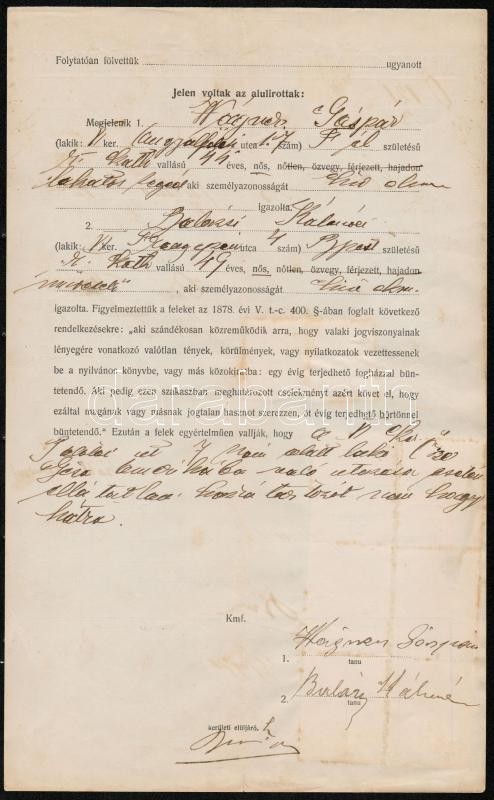 Folytatóan fölvettük ugyanott
Jelen voltak az alulirottak:
Megjelenik 1. Wágner Gáspár
(lakik: VI ker. utca 17 szám) születésű
r. kath vallású 44 éves, nős, nőtlen, özvegy, férjezett, hajadon
lakatos segéd aki személyazonosságát
igazolta.
2. Balázsi Kálmán
(lakik: VI ker. utca 4 szám) Bpest születésű
r. kath vallású 49 éves, nős, nőtlen, özvegy, férjezett, hajadon
, aki személyazonosságát
igazolta. Figyelmeztettük a feleket az 1878. évi V. t.-c. 400. §-ában foglalt következő
rendelkezésekre: „aki szándékosan közreműködik arra, hogy valaki jogviszonyainak
lényegére vonatkozó valótlan tények, körülmények, vagy nyilatkozatok vezettessenek
be a nyilvános könyvbe, vagy más közokiratba: egy évig terjedhető fogházzal bün-
tetendő. Aki pedig ezen szikaszban meghatározott cselekményt azért követ el, hogy
ezáltal magának vagy másnak jogtalan hasznot szerezzen, öt évig terjedhető börtönnel
büntetendő.“ Ezután a felek egyértelműen vallják, hogy a VI ker.
út 7 szám alatt lakó
Amerikába való utazása esetén
ellátatlan hozzá tartozót nem hagy
hátra.
darabanth
Kmf.
Wágner Gáspár
1. tanu
Balázsi Kálmán
2. tanu
kerületi elüljáró. h